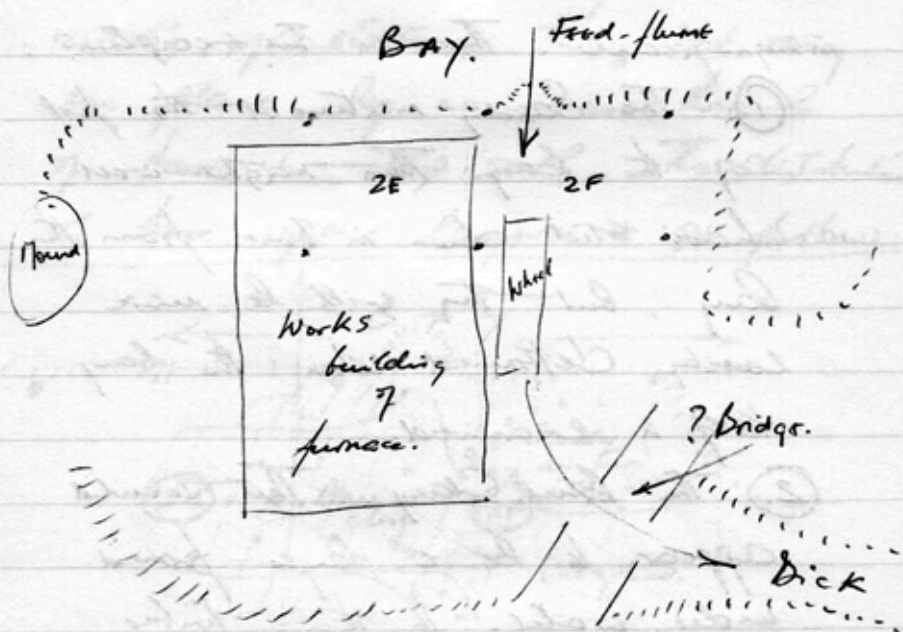 BAY.
Feed-flume
2E
2F
Mound
Wheel
Works
building
of
furnace.
? Bridge.
Dick